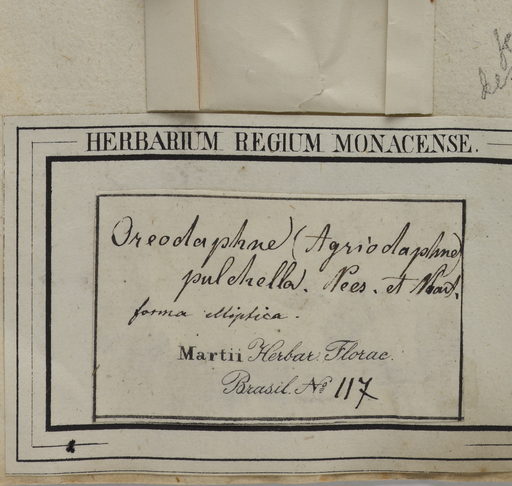 HERBARIUM REGIUM MONACENSE.
Oreodaphne (Agriodaphne)
pulchella. Nees. et Mart.
forma elliptica.
Martii Herbar. Florae
Brasil. No 117